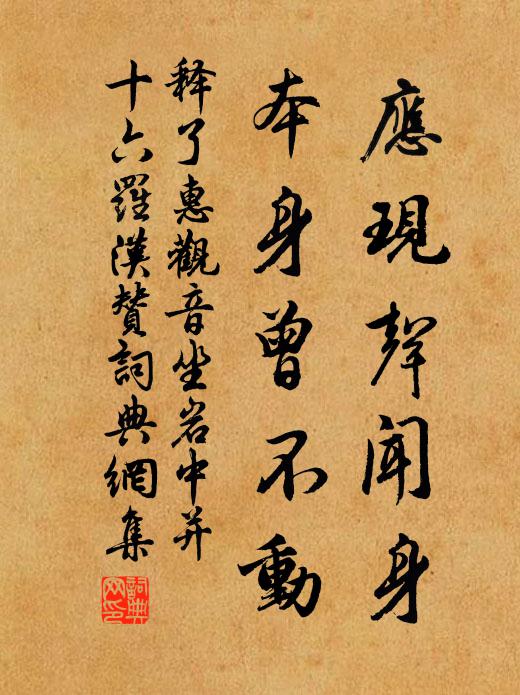 應現聲聞身
本身曾不動
释了惠觀音坐岩中并
十六羅漢贊詞典網集
詞典网印